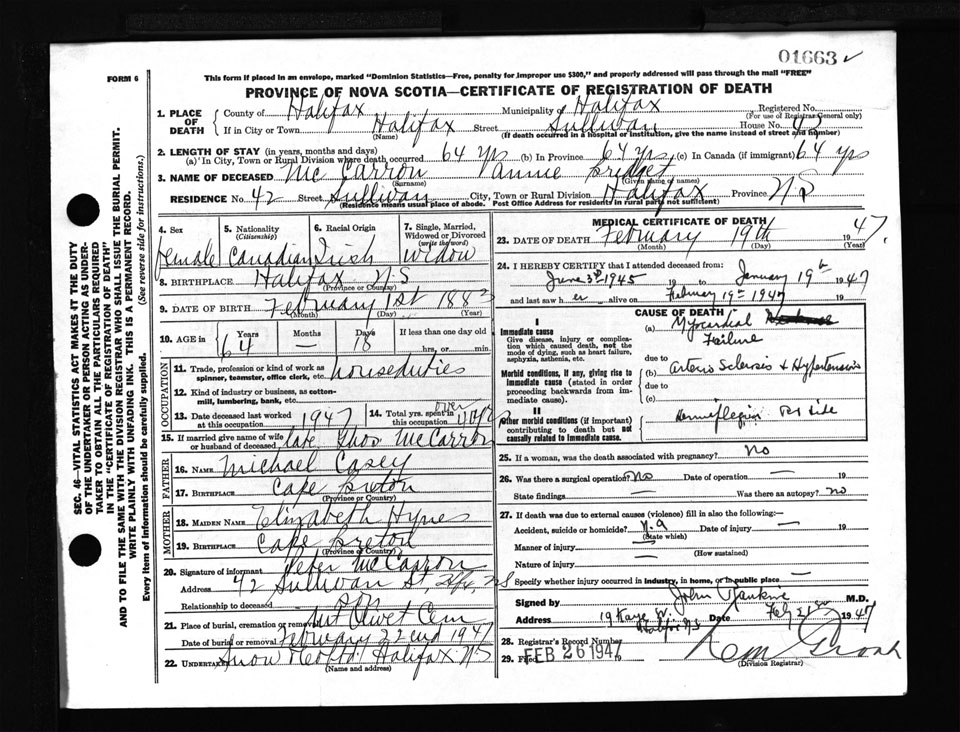 01663 ✓
FORM 6
This form if placed in an envelope, marked "Dominion Statistics—Free, penalty for improper use $300," and properly addressed will pass through the mail "FREE"
PROVINCE OF NOVA SCOTIA—CERTIFICATE OF REGISTRATION OF DEATH
SEC. 46—VITAL STATISTICS ACT MAKES IT THE DUTY
OF THE UNDERTAKER OR PERSON ACTING AS UNDER-
TAKER TO OBTAIN ALL THE PARTICULARS REQUIRED
IN THE "CERTIFICATE OF REGISTRATION OF DEATH"
AND TO FILE THE SAME WITH THE DIVISION REGISTRAR WHO SHALL ISSUE THE BURIAL PERMIT.
WRITE PLAINLY WITH UNFADING INK. THIS IS A PERMANENT RECORD.
Every item of Information should be carefully supplied. (See reverse side for instructions.)
1. PLACE OF DEATH
County of Halifax Municipality of Halifax Registered No.
(For use of Registrar General only)
If in City or Town Halifax Street Sullivan House No. 42
(Name) (If death occurred in a hospital or institution, give the name instead of street and number)
2. LENGTH OF STAY (in years, months and days)
(a) In City, Town or Rural Division where death occurred 64 yrs (b) In Province 64 yrs (c) In Canada (if immigrant) 64 yrs
3. NAME OF DECEASED Mc Carron Annie Bridget
(Surname) (Given name or names)
RESIDENCE No. 42 Street Sullivan City, Town or Rural Division Halifax Province N.S
(Residence means usual place of abode. Post Office Address for residents in rural parts not sufficient)
4. Sex
Female
5. Nationality
(Citizenship)
Canadian
6. Racial Origin
Irish
7. Single, Married,
Widowed or Divorced
(write the word)
Widow
8. BIRTHPLACE Halifax N.S
(Province or Country)
9. DATE OF BIRTH February 1st 1883
(Month) (Day) (Year)
10. AGE in
Years 64
Months —
Days 18
If less than one day old
hrs. or min.
OCCUPATION
11. Trade, profession or kind of work as
spinner, teamster, office clerk, etc. houseduties
12. Kind of industry or business, as cotton-
mill, lumbering, bank, etc.
13. Date deceased last worked
at this occupation 1947
14. Total yrs. spent in
this occupation over
15. If married give name of wife
or husband of deceased late Thos McCarron
FATHER
16. NAME Michael Casey
17. BIRTHPLACE Cape Breton
(Province or Country)
MOTHER
18. MAIDEN NAME Elizabeth Hynes
19. BIRTHPLACE Cape Breton
(Province or Country)
20. Signature of informant Peter McCarron
Address 42 Sullivan St, Hfx, N.S
Relationship to deceased son
21. Place of burial, cremation or removal Mt Olivet Cem
Date of burial or removal February 22nd 1947
22. UNDERTAKER Snow & Co Ltd Halifax N.S
(Name and address)
MEDICAL CERTIFICATE OF DEATH
23. DATE OF DEATH February 19th 1947.
(Month) (Day) (Year)
24. I HEREBY CERTIFY that I attended deceased from
June 3rd 1945 to January 19th 1947
and last saw h er alive on February 19th 1947
CAUSE OF DEATH
I
Immediate cause
Give disease, injury or complica-
tion which caused death, not the
mode of dying, such as heart failure,
asphyxia, asthenia, etc.
(a) Myocardial
Failure
due to
Morbid conditions, if any, giving rise to
immediate cause (stated in order
proceeding backwards from im-
mediate cause).
(b) Arterio Sclerosis & Hypertension
due to
(c)
II
Other morbid conditions (if important)
contributing to death but not
causally related to immediate cause.
Hemiplegia Rt side
25. If a woman, was the death associated with pregnancy? No
26. Was there a surgical operation? No Date of operation — 19
State findings — Was there an autopsy? no
27. If death was due to external causes (violence) fill in also the following:—
Accident, suicide or homicide? N.a Date of injury — 19
(State which)
Manner of injury —
(How sustained)
Nature of injury —
Specify whether injury occurred in industry, in home, or in public place —
Signed by John Rankine M.D.
Address 19 Kaye St. Halifax N.S Date Feb 21st 1947
28. Registrar's Record Number
29. Filed FEB 26 1947 19
(Division Registrar)